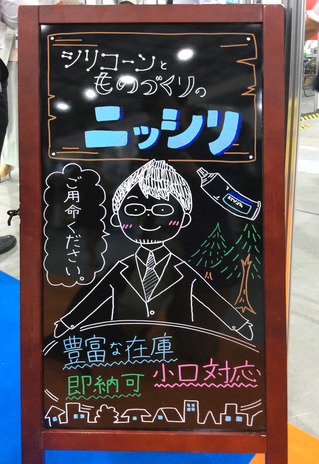 シリコーンと
ものづくりの
ニッシリ
ご用命ください。
豊富な在庫
即納可
小口対応